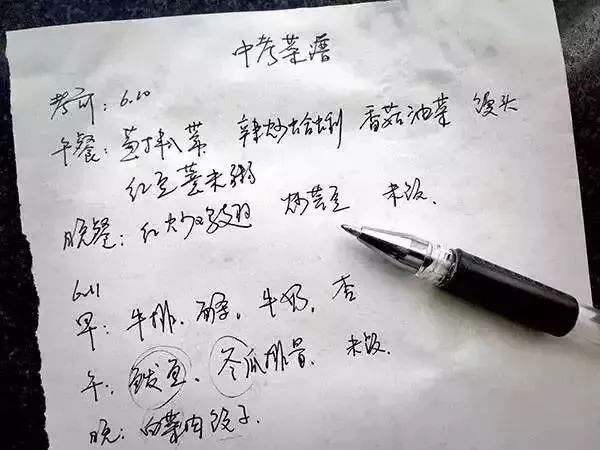 中考菜谱
考前：6.10
午餐： 辣炒蛤蜊 香菇油菜 馒头
红豆薏米粥
晚餐：红烧鸡翅 炒芸豆 米饭.
6.11
早：牛排. 牛奶. 杏
午：鲅鱼. 冬瓜排骨. 米饭.
晚：白菜肉饺子.